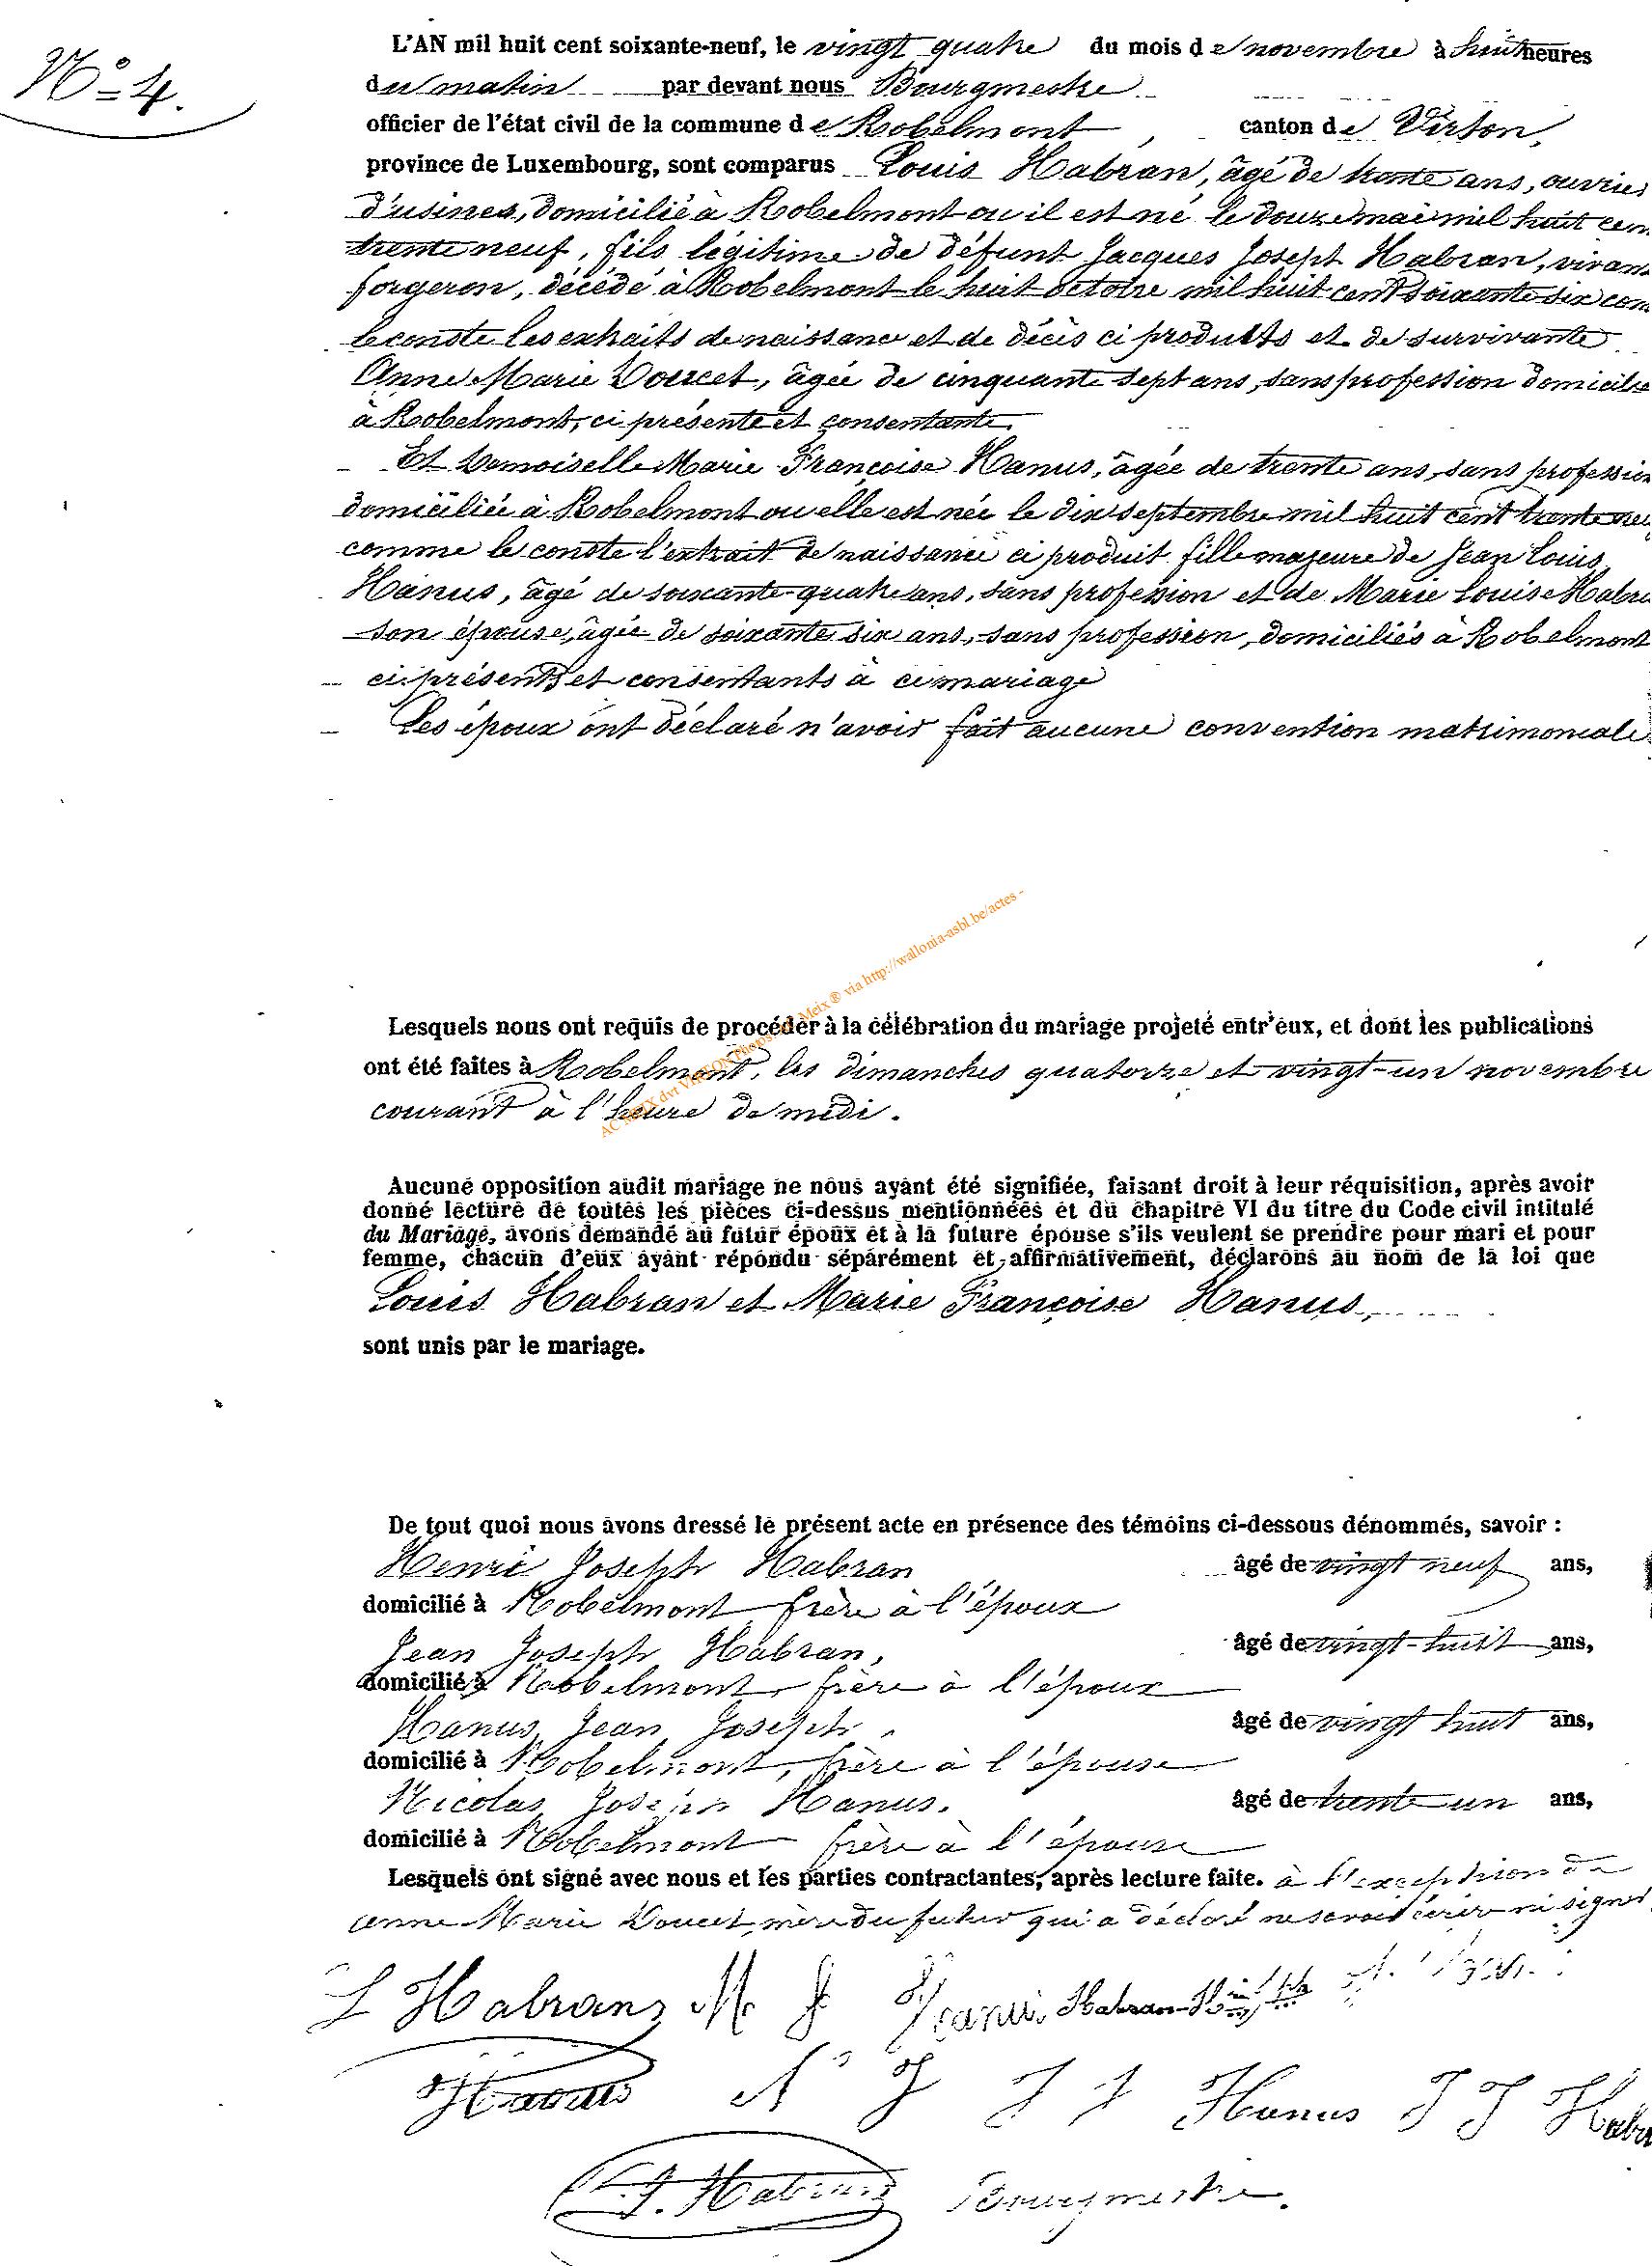 N° = 4.
L'AN mil huit cent soixante-neuf, le vingt quatre du mois de novembre à huit heures
du matin par devant nous Bourgmestre
officier de l'état civil de la commune de Robelmont, canton de Virton,
province de Luxembourg, sont comparus Louis Habran, âgé de trente ans, ouvrier
d'usines, domicilié à Robelmont ou il est né le douze mai mil huit cen
trente neuf, fils légitime de défunt Jacques Joseph Habran, vivan
forgeron, décédé à Robelmont le huit octobre mil huit cent soixante six com
le conste les extraits de naissance et de décès ci produits et de survivante
Anne Marie Doucet, âgée de cinquante sept ans, sans profession domicilié
à Robelmont, ci présente et consentante.
Et Demoiselle Marie Françoise Hanus, âgée de trente ans, sans profession
domiciliée à Robelmont ou elle est née le dix septembre mil huit cent trente neu
comme le conste l'extrait de naissance ci produit fille majeure de Jean Louis
Hanus, âgé de soixante-quatre ans, sans profession et de Marie Louise Habra
son épouse, âgée de soixante six ans, sans profession, domiciliés à Robelmont
ci présents et consentants à ce mariage
Les époux ont déclaré n'avoir fait aucune convention matrimoniale
AC MEIX dvt VIRTON Photos Meix ® via http://wallonia-asbl.be/actes -
Lesquels nous ont requis de procéder à la célébration du mariage projeté entr'eux, et dont les publications
ont été faites à Robelmont, les dimanches quatorze et vingt-un novembre
courant à l'heure de midi.
Aucune opposition audit mariage ne nous ayant été signifiée, faisant droit à leur réquisition, après avoir
donné lecture de toutes les pièces ci-dessus mentionnées et du chapitre VI du titre du Code civil intitulé
du Mariage, avons demandé au futur époux et à la future épouse s'ils veulent se prendre pour mari et pour
femme, chacun d'eux ayant répondu séparément et affirmativement, déclarons au nom de la loi que
Louis Habran et Marie Françoise Hanus,
sont unis par le mariage.
De tout quoi nous avons dressé le présent acte en présence des témoins ci-dessous dénommés, savoir :
Henri Joseph Habran âgé de vingt neuf ans,
domicilié à Robelmont frère à l'époux
Jean Joseph Habran, âgé de vingt-huit ans,
domicilié à Robelmont, frère à l'époux
Hanus Jean Joseph, âgé de vingt huit ans,
domicilié à Robelmont, frère à l'épouse
Nicolas Joseph Hanus. âgé de trente un ans,
domicilié à Robelmont frère à l'épouse
Lesquels ont signé avec nous et les parties contractantes, après lecture faite. à l'exception de
anne Marie Doucet, mère du futur qui a déclaré ne savoir écrire ni signer
L Habran M f Hanus Habran-H
Hanus N J J J Hanus J J Habra
J. Habran Bourgmestre.